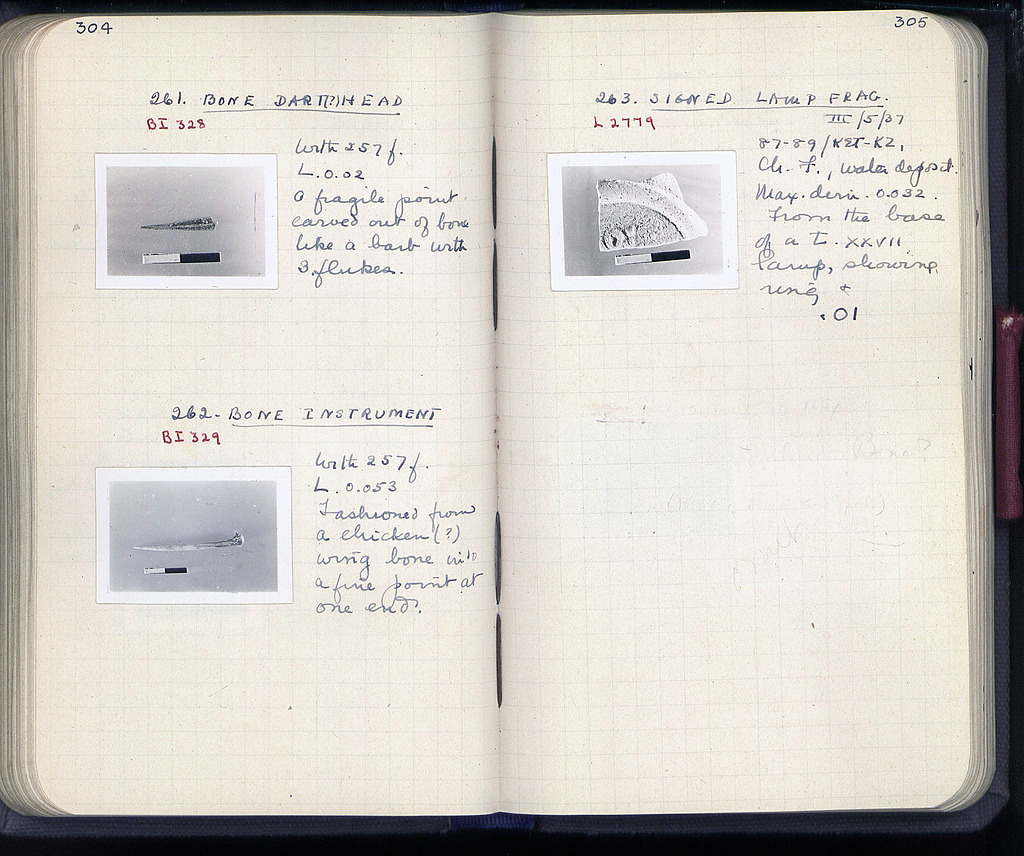 304
261. BONE DART(?)HEAD
BI 328
With 257 f.
L. 0.02
A fragile point
carved out of bone
like a barb with
3 flukes.
262. BONE INSTRUMENT
BI 329
With 257 f.
L. 0.053
Fashioned from
a chicken (?)
wing bone into
a fine point at
one end.
305
263. SIGNED LAMP FRAG.
L 2779
III/5/37
87-89/
Ch. F., water deposit.
Max. dim. 0.032.
From the base
of a T. XXVII
lamp, showing
ring +
.01